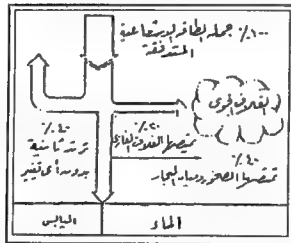 ١٠٠٪ جملة الطاقة الإشعاعية
المتدفقة
الغلاف الجوى
٤٠٪
ترتد ثانية
بدون أى تغيير
٢٠٪
يمتصها الغلاف الغازى
٤٠٪
تمتصها الصخور ومياه البحار
اليابس
الماء